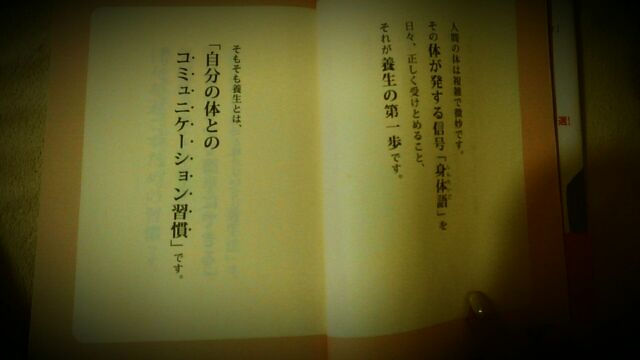 人間の体は複雑で微妙です。
その体が発する信号「身体語」を
日々、正しく受けとめること、
それが養生の第一歩です。
そもそも養生とは、
「自分の体との
コミュニケーション習慣」です。
選!